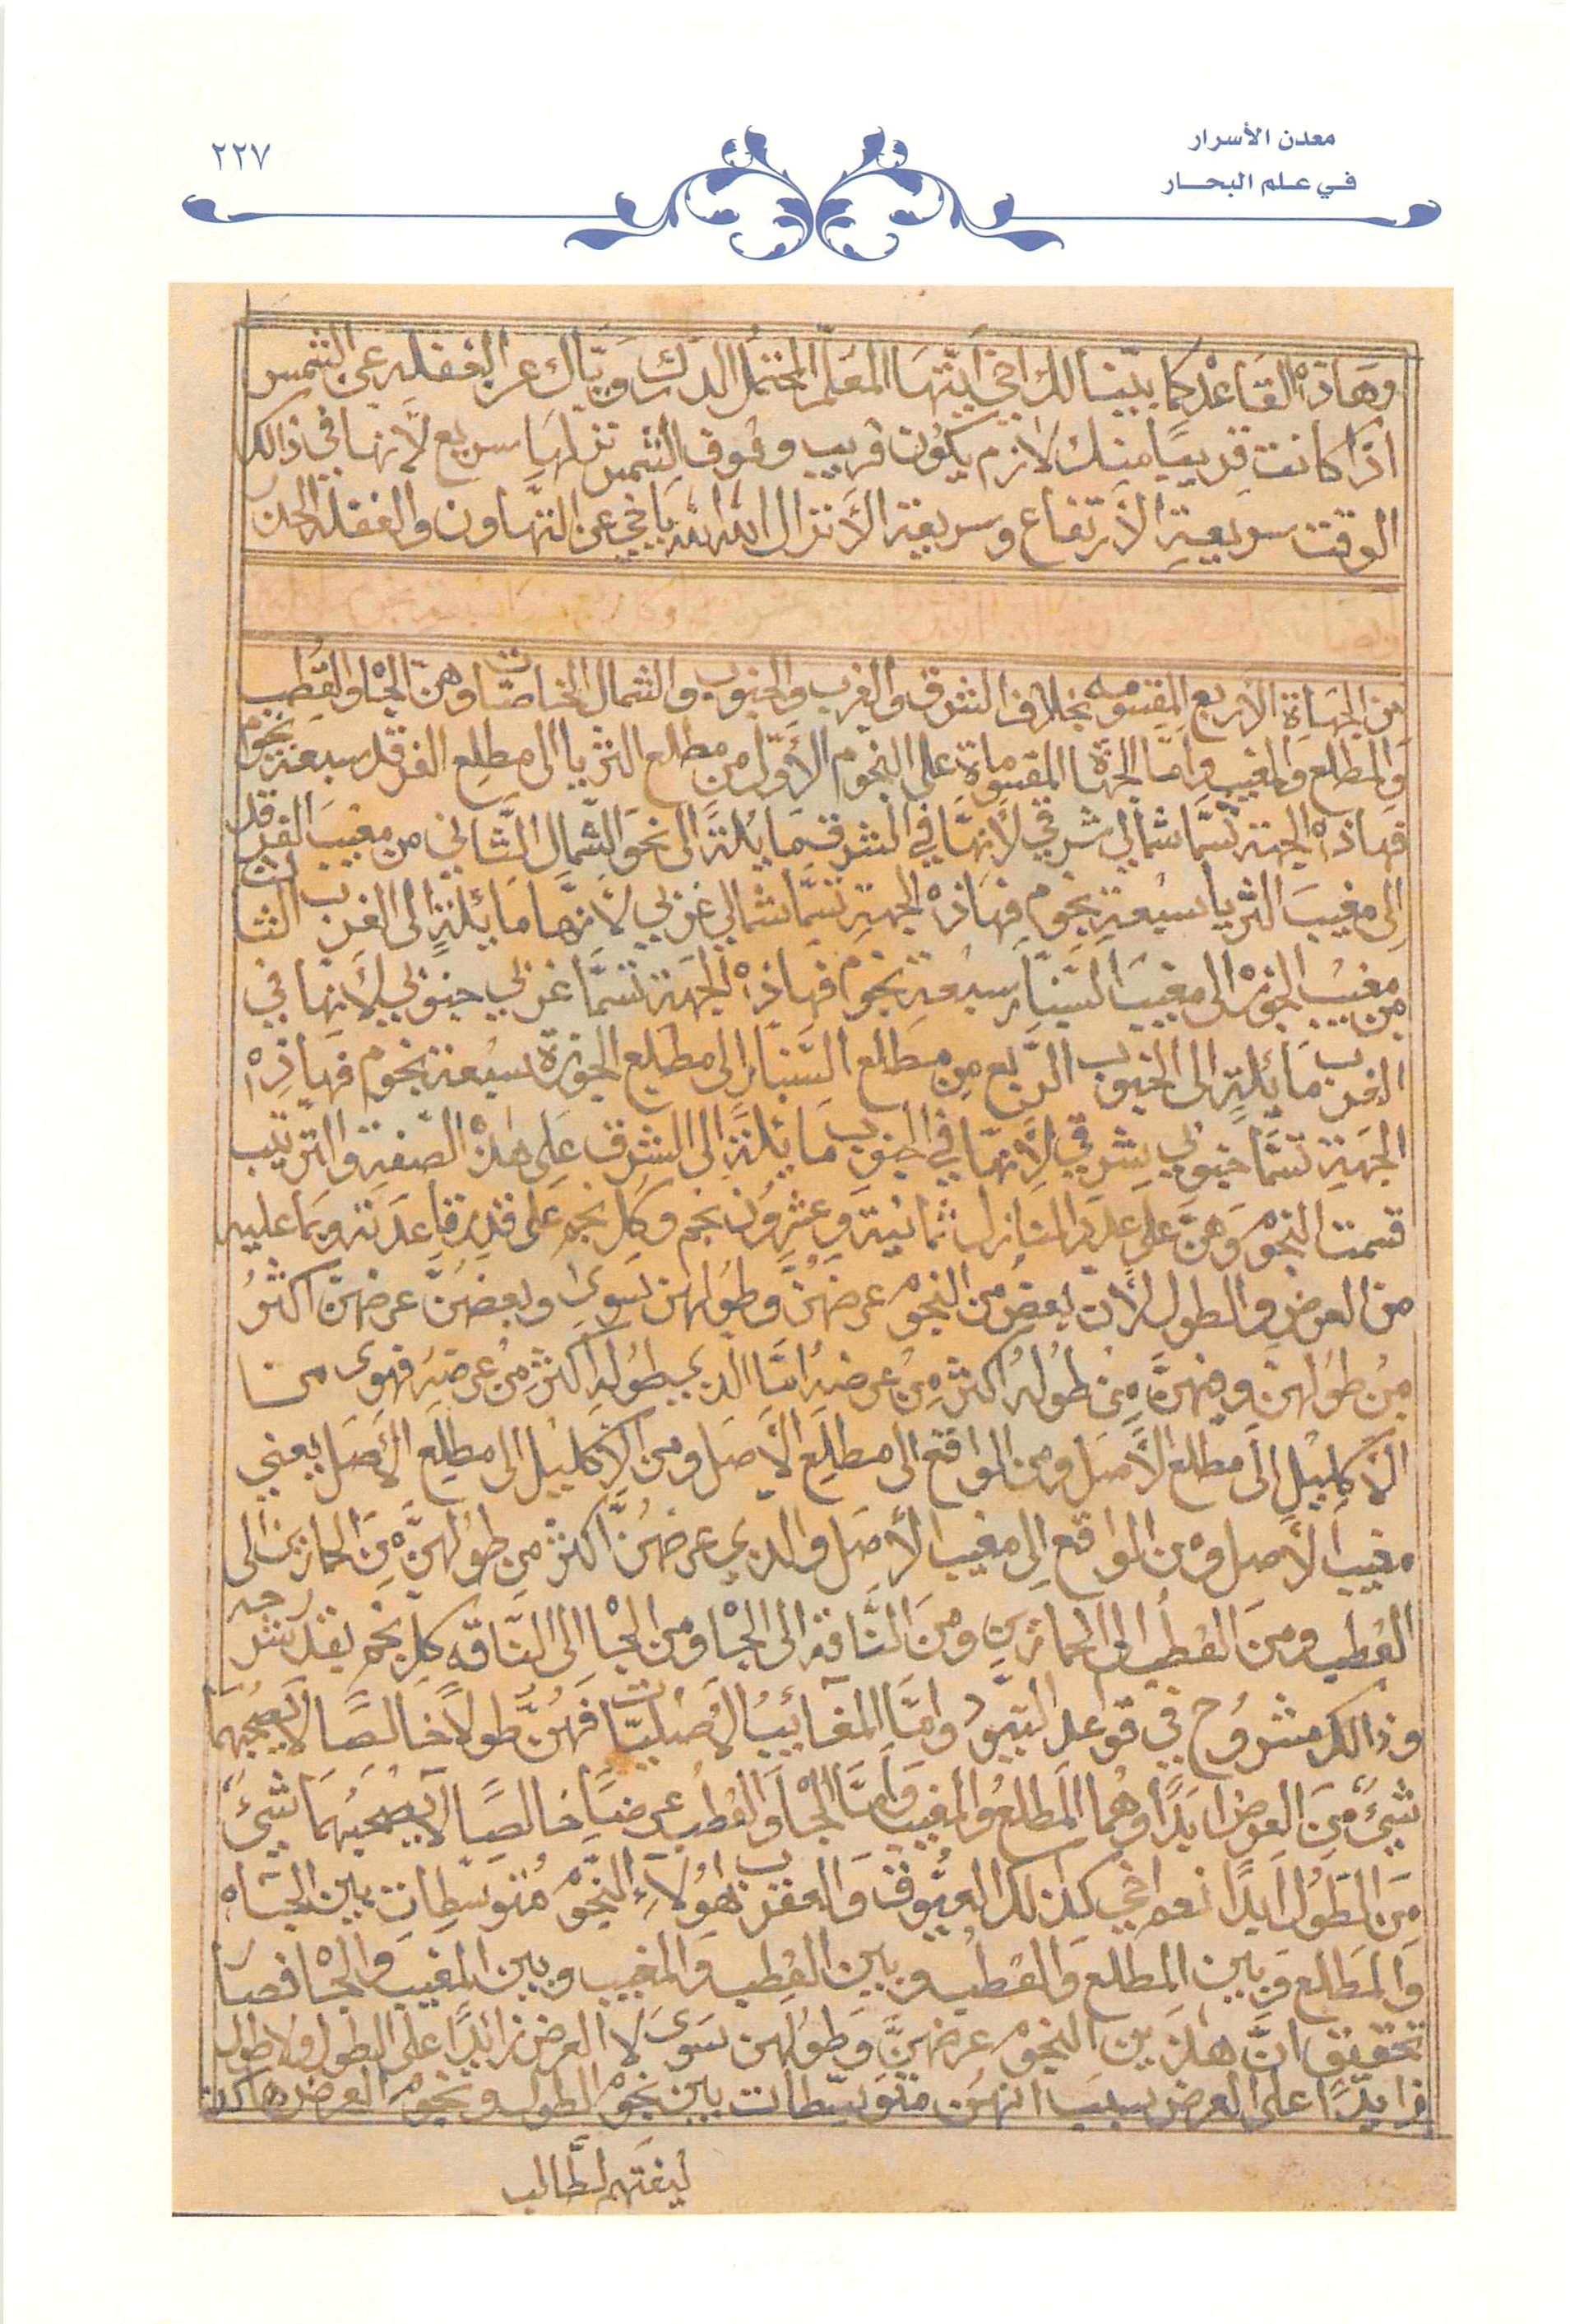 معدن الأسرار
في علم البحار
٢٢٧
وهاذه القاعده كما بيّنا لك اخي ايّتها المعلّم المحتمل الدرك وايّاك عن الغفله عن الشمس
اذا كانت قريبًا منك لازم يكون قريب وقوف الشمس نزلها سريع لأنها في ذالك
الوقت سريعة الأرتفاع وسريعة الأنزال الله الله يا اخي عن التهاون والغفله الحذر
من الجهاة الأربع المقسومه بخلاف الشرق والغرب والجنوب والشمال الخاصّات وهنّ الجاه والقطب
والمطلع والمغيب وامّا الجهاة المقسوماة على النجوم الأوّل من مطلع الثريا الى مطلع الفرقد سبعة نجوم
فهاذه الجهة تسمّا شمالي شرقي لأنها في الشرق مايلةً الى نحو الشمال الثاني من مغيب الفرقد
إلى مغيب الثريا سبعة نجوم فهاذه الجهة تسمّا شمالي غربي لأنّها مائلةً الى الغرب الثالث
من مغيب الجوزه الى مغيب السنبار سبعة نجوم فهاذه الجهة تسمّا غربي جنوبي لأنها في
الغرب مائلة الى الجنوب الرّبع من مطلع السنبار إلى مطلع الجوزة سبعة نجوم فهاذه
الجهة تسمّا جنوبي شرقي لأنّها في الجنوب مايلةً الى الشرق على هذه الصفة والترتيب
قسمت النجوم وهنّ على عدد المنازل ثمانية وعشرون نجم وكل نجم على قدر قاعدته وبما عليه
من العرض والطول لأن بعض من النجوم عرضهنّ وطولهن سوى وبعضهنّ عرضهنّ اكثر
من طولهنّ ومنهنّ من طوله اكثر من عرضه امّا الذي طوله اكثر من عرضه فهوى من
الأكليل إلى مطلع الأصل ومن المواقع الى مطلع الأصل ومن الأكليل الى مطلع الأصل يعني
مغيب الأصل ومن المواقع إلى مغيب الأصل والذي عرضهنّ اكثر من طولهنّ من الحمارين الى
القطب ومن القطب الى الحمارين ومن النّاقة الى الجاه ومن الجاه الى النّاقه كل نجم بقدر شرحه
وذالك مشروح في قواعد التير وامّا المغائيب الأصليّات فهنّ طولاً خالصًا لا يصحبهما
شيئ من العرض ابدًا وهما المطلع والمغيب وأمّا الجاه والقطب عرضيًا خالصًا لا يصحبهما شيئ
من الطول ابدًا نعم اخي كذلك العيّوق والعقرب هؤلاء النجوم متوسطات بين الجاه
والمطلع وبين المطلع والقطب وبين القطب والمغيب وبين المغيب والجاه فصار
تحقيق انّ هاذين النجوم عرضهنّ وطولهن سوى لا العرض زائدًا على الطول ولا طول
زايدًا على العرض بسبب انهن متوسّطات بين نجوم الطول ونجوم العرض هاكذا
ليفتهم لطّالب